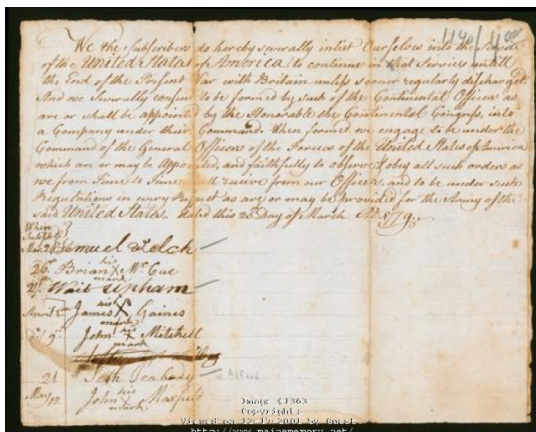 1140 / 11.00
We the Subscribers do hereby severally inlist Ourselves into the Service
of the United States of America, to continue in that Service untill
the End of the Present War with Britain unless sooner regularly discharged
And we severally consent to be formed by such of the Continental Officers as
are or shall be appointed by the Honorable the Continental Congress, into
a Company under their Command. When formed we engage to be under the
Command of the General Officers of the Forces of the United States of America
which are or may be Appointed and faithfully to observe & obey all such orders as
we from Time to Time shall receive from our Officers, and to be under such
Regulations in every Respect as are or may be provided for the Army of the
said United States. Dated this 25 Day of March AD 1779
When
Inlisted
Mar. 26 Samuel Felch
his
26 Brian X Mc Cue
mark
27 Wait Upham
his
April James X Gaines
mark
his
9 John X Mitchell
mark
21 Seth Peabody
his
May 12 John X Maxfield
mark
Image C1363
Copyright:
Viewed on 12-17-2001 by Guest
http://www.mainememory.net/